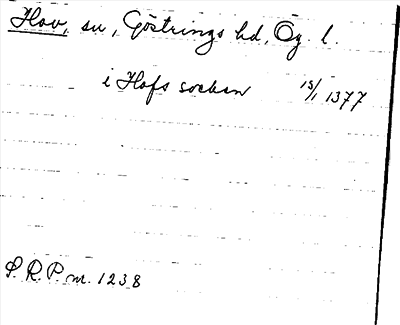 Hov, sn, Göstrings hd, Ög. l.
i Hofs socken 15/1 1377
S. R. P. nr. 1238